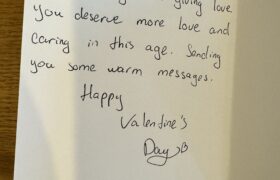 giving love
You deserve more love and
caring in this age. Sending
you some warm messages.
Happy
Valentine's
Day